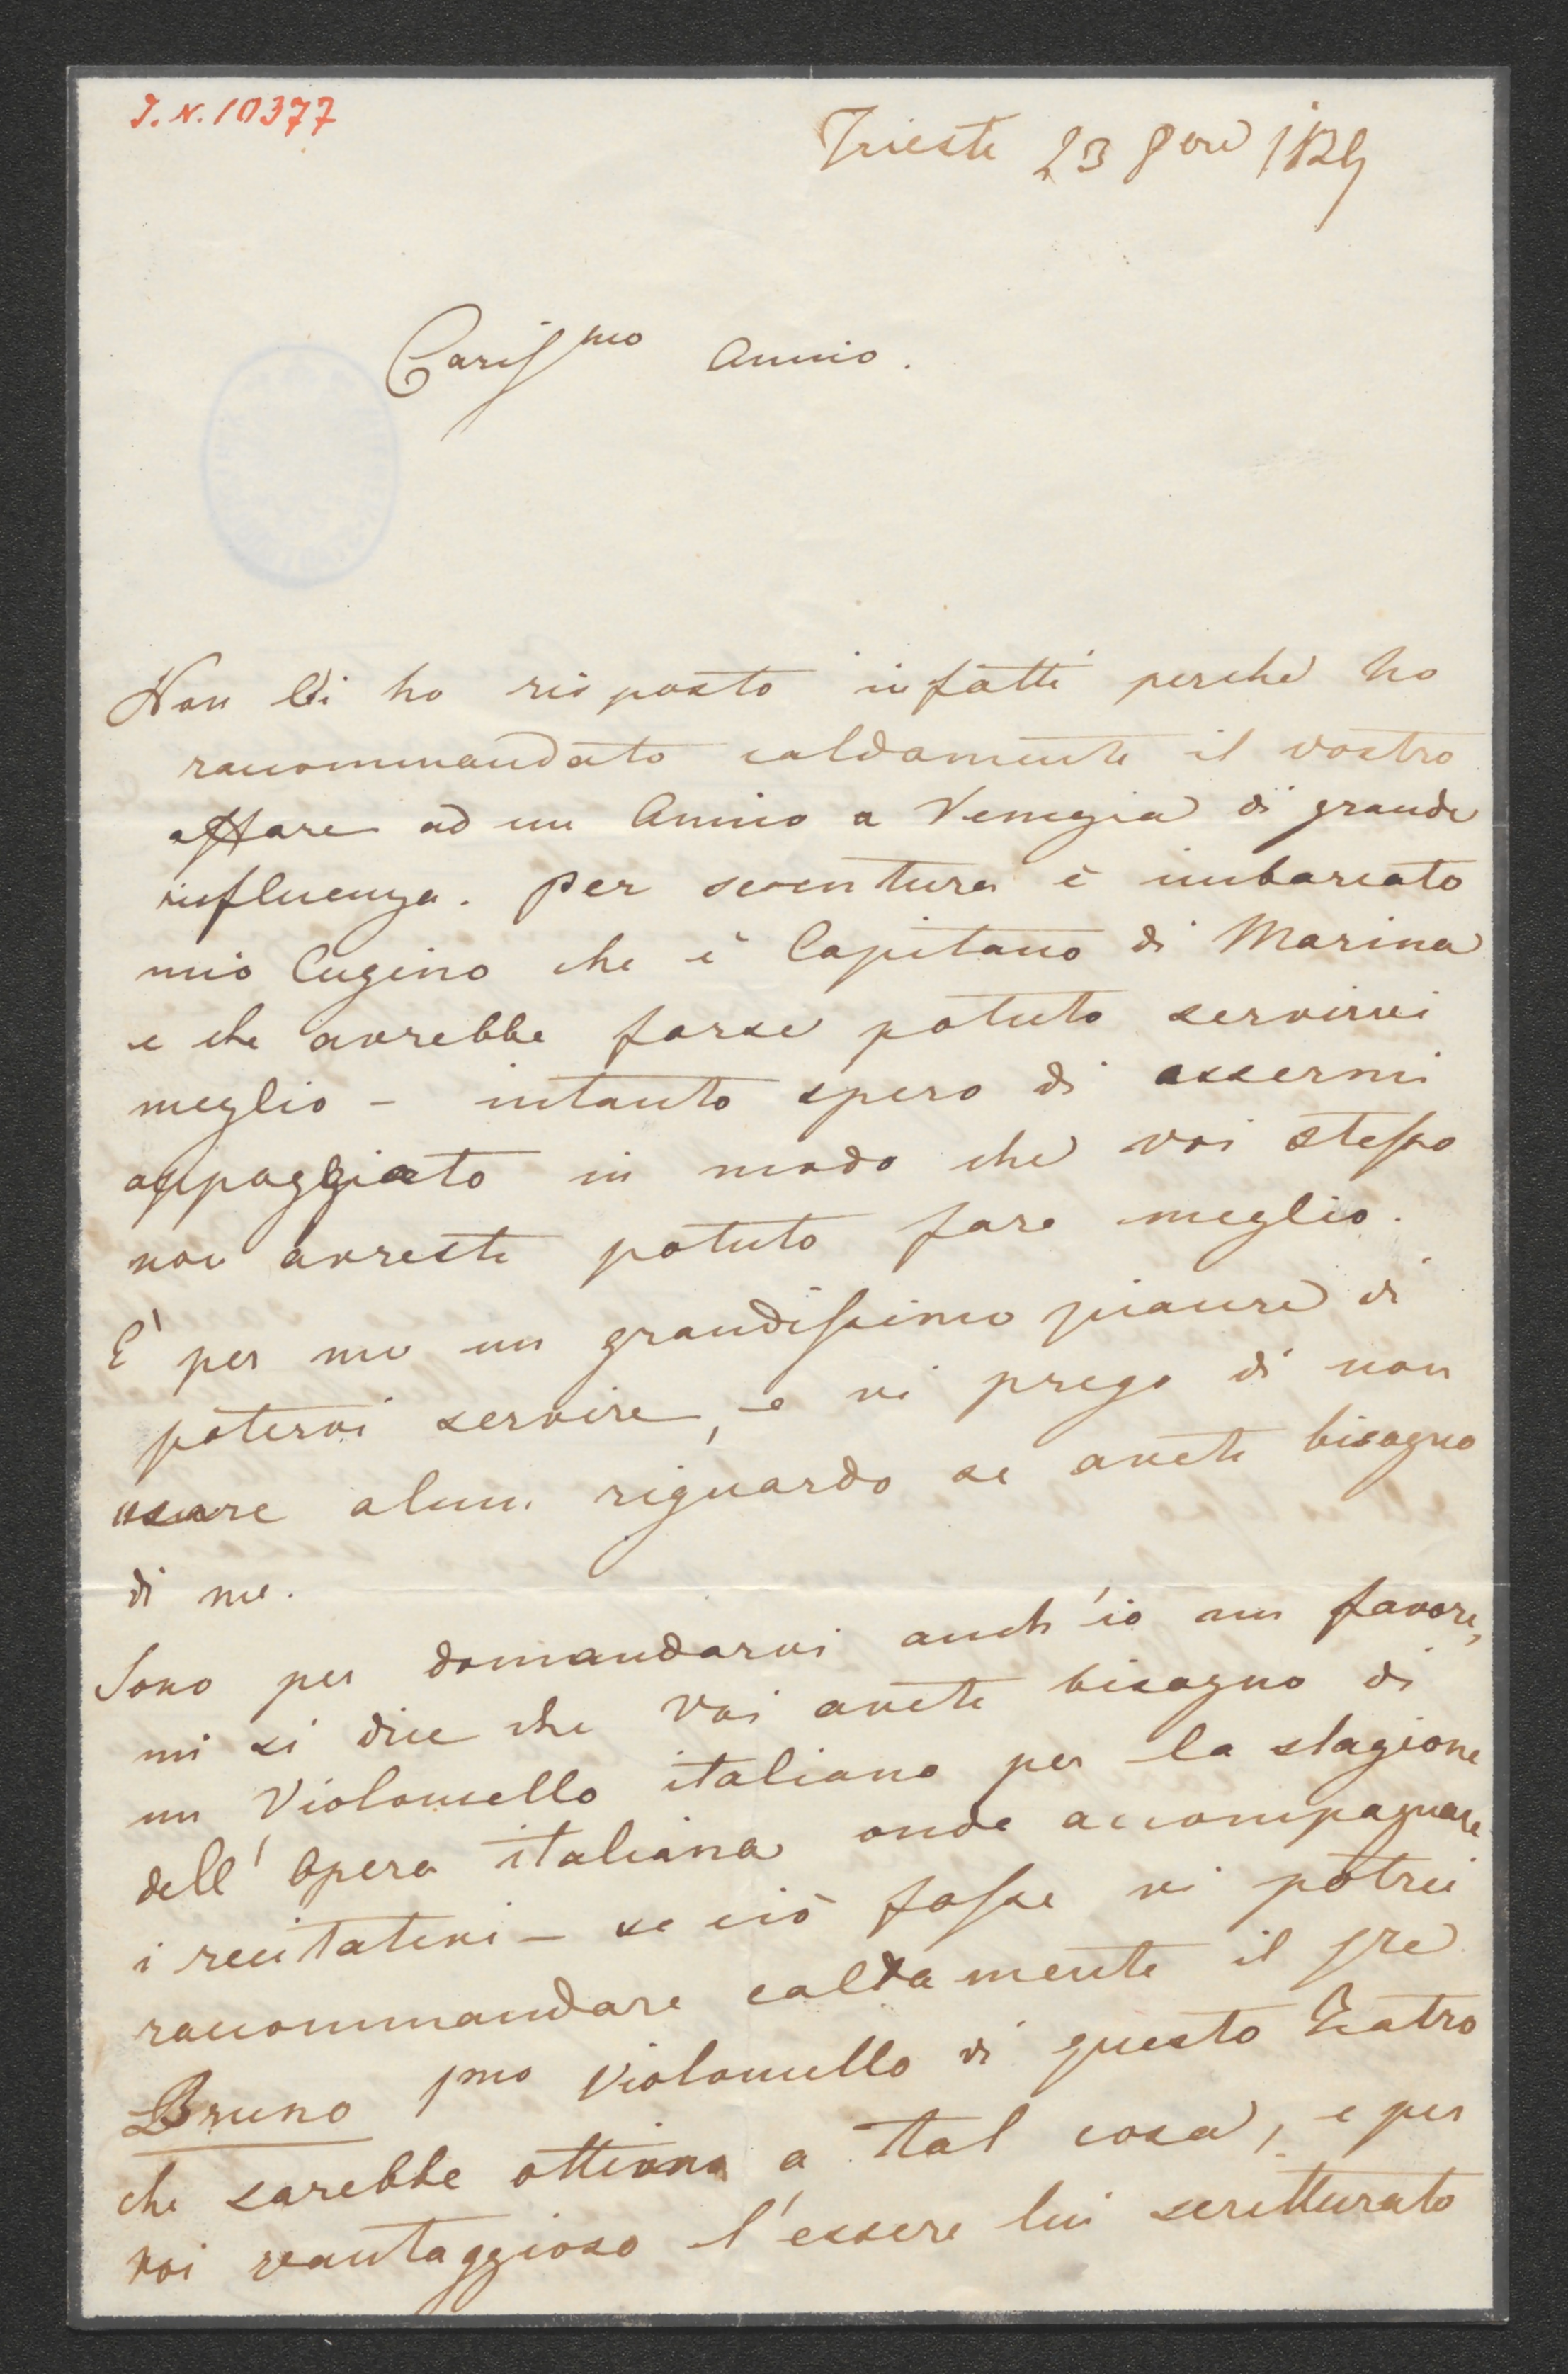 J. N. 10377
Trieste 23 8bre
Carissmo Amico.
Non Vi ho risposto infatti perche ho
raccommandato caldamente il vostro
affare ad un Amico a Venezia di grande
influenza. Per sventura è imbarcato
mio Cugino che è Capitano di Marina
e che avrebbe forse potuto servirvi
meglio - intanto spero di essermi
appoggiato in modo che voi stesso
non avreste potuto fare meglio.
E' per me un grandissimo piacere di
potervi servire, e vi prego di non
usare alcun riguardo se avete bisogno
di me.
Sono per domandarvi anch'io un favore,
mi si dice che Voi avete bisogno di
un Violoncello italiano per la stagione
dell'opera italiana onde accompagnare
i recitativi - se ciò fosse vi potrei
raccommandare caldamente il
Bruno 1mo Violoncello di questo Teatro
che sarebbe ottimo a tal cosa, e per
voi vantaggioso l'essere lui scritturato